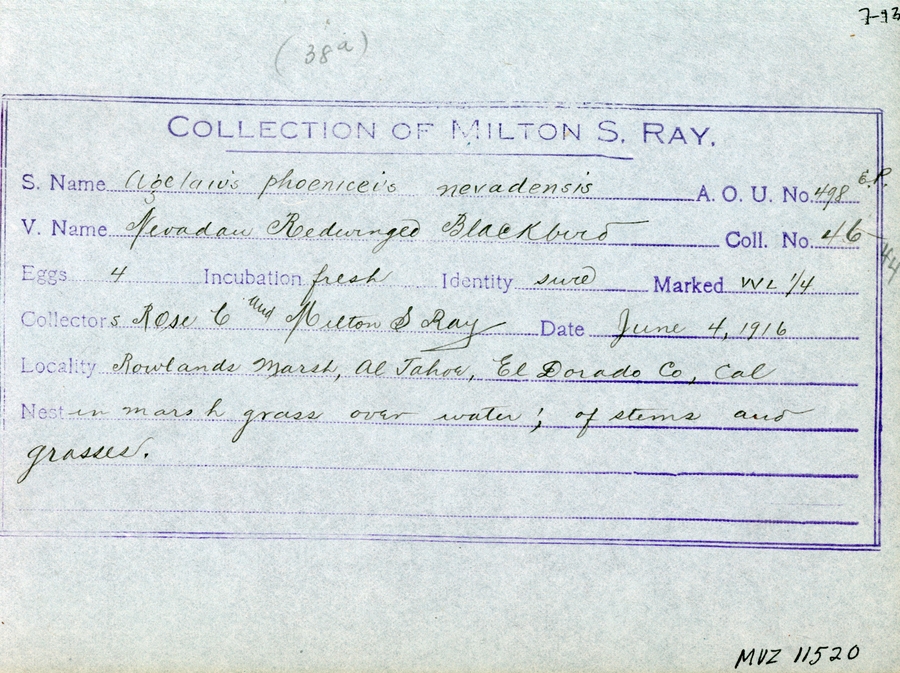 7-13
(38a)
COLLECTION OF MILTON S. RAY.
S. Name Agelaius phoeniceis nevadensis A. O. U. No. 498 E.P.
V. Name Nevadan Redwinged Blackbird Coll. No. 46
44
Eggs 4 Incubation fresh Identity sure Marked 1/4
Collectors Rose C and Milton S Ray Date June 4, 1916
Locality Rowlands Marsh, Al Tahoe, El Dorado Co, Cal
Nest in marsh grass over water; of stems and
grasses.
MVZ 11520